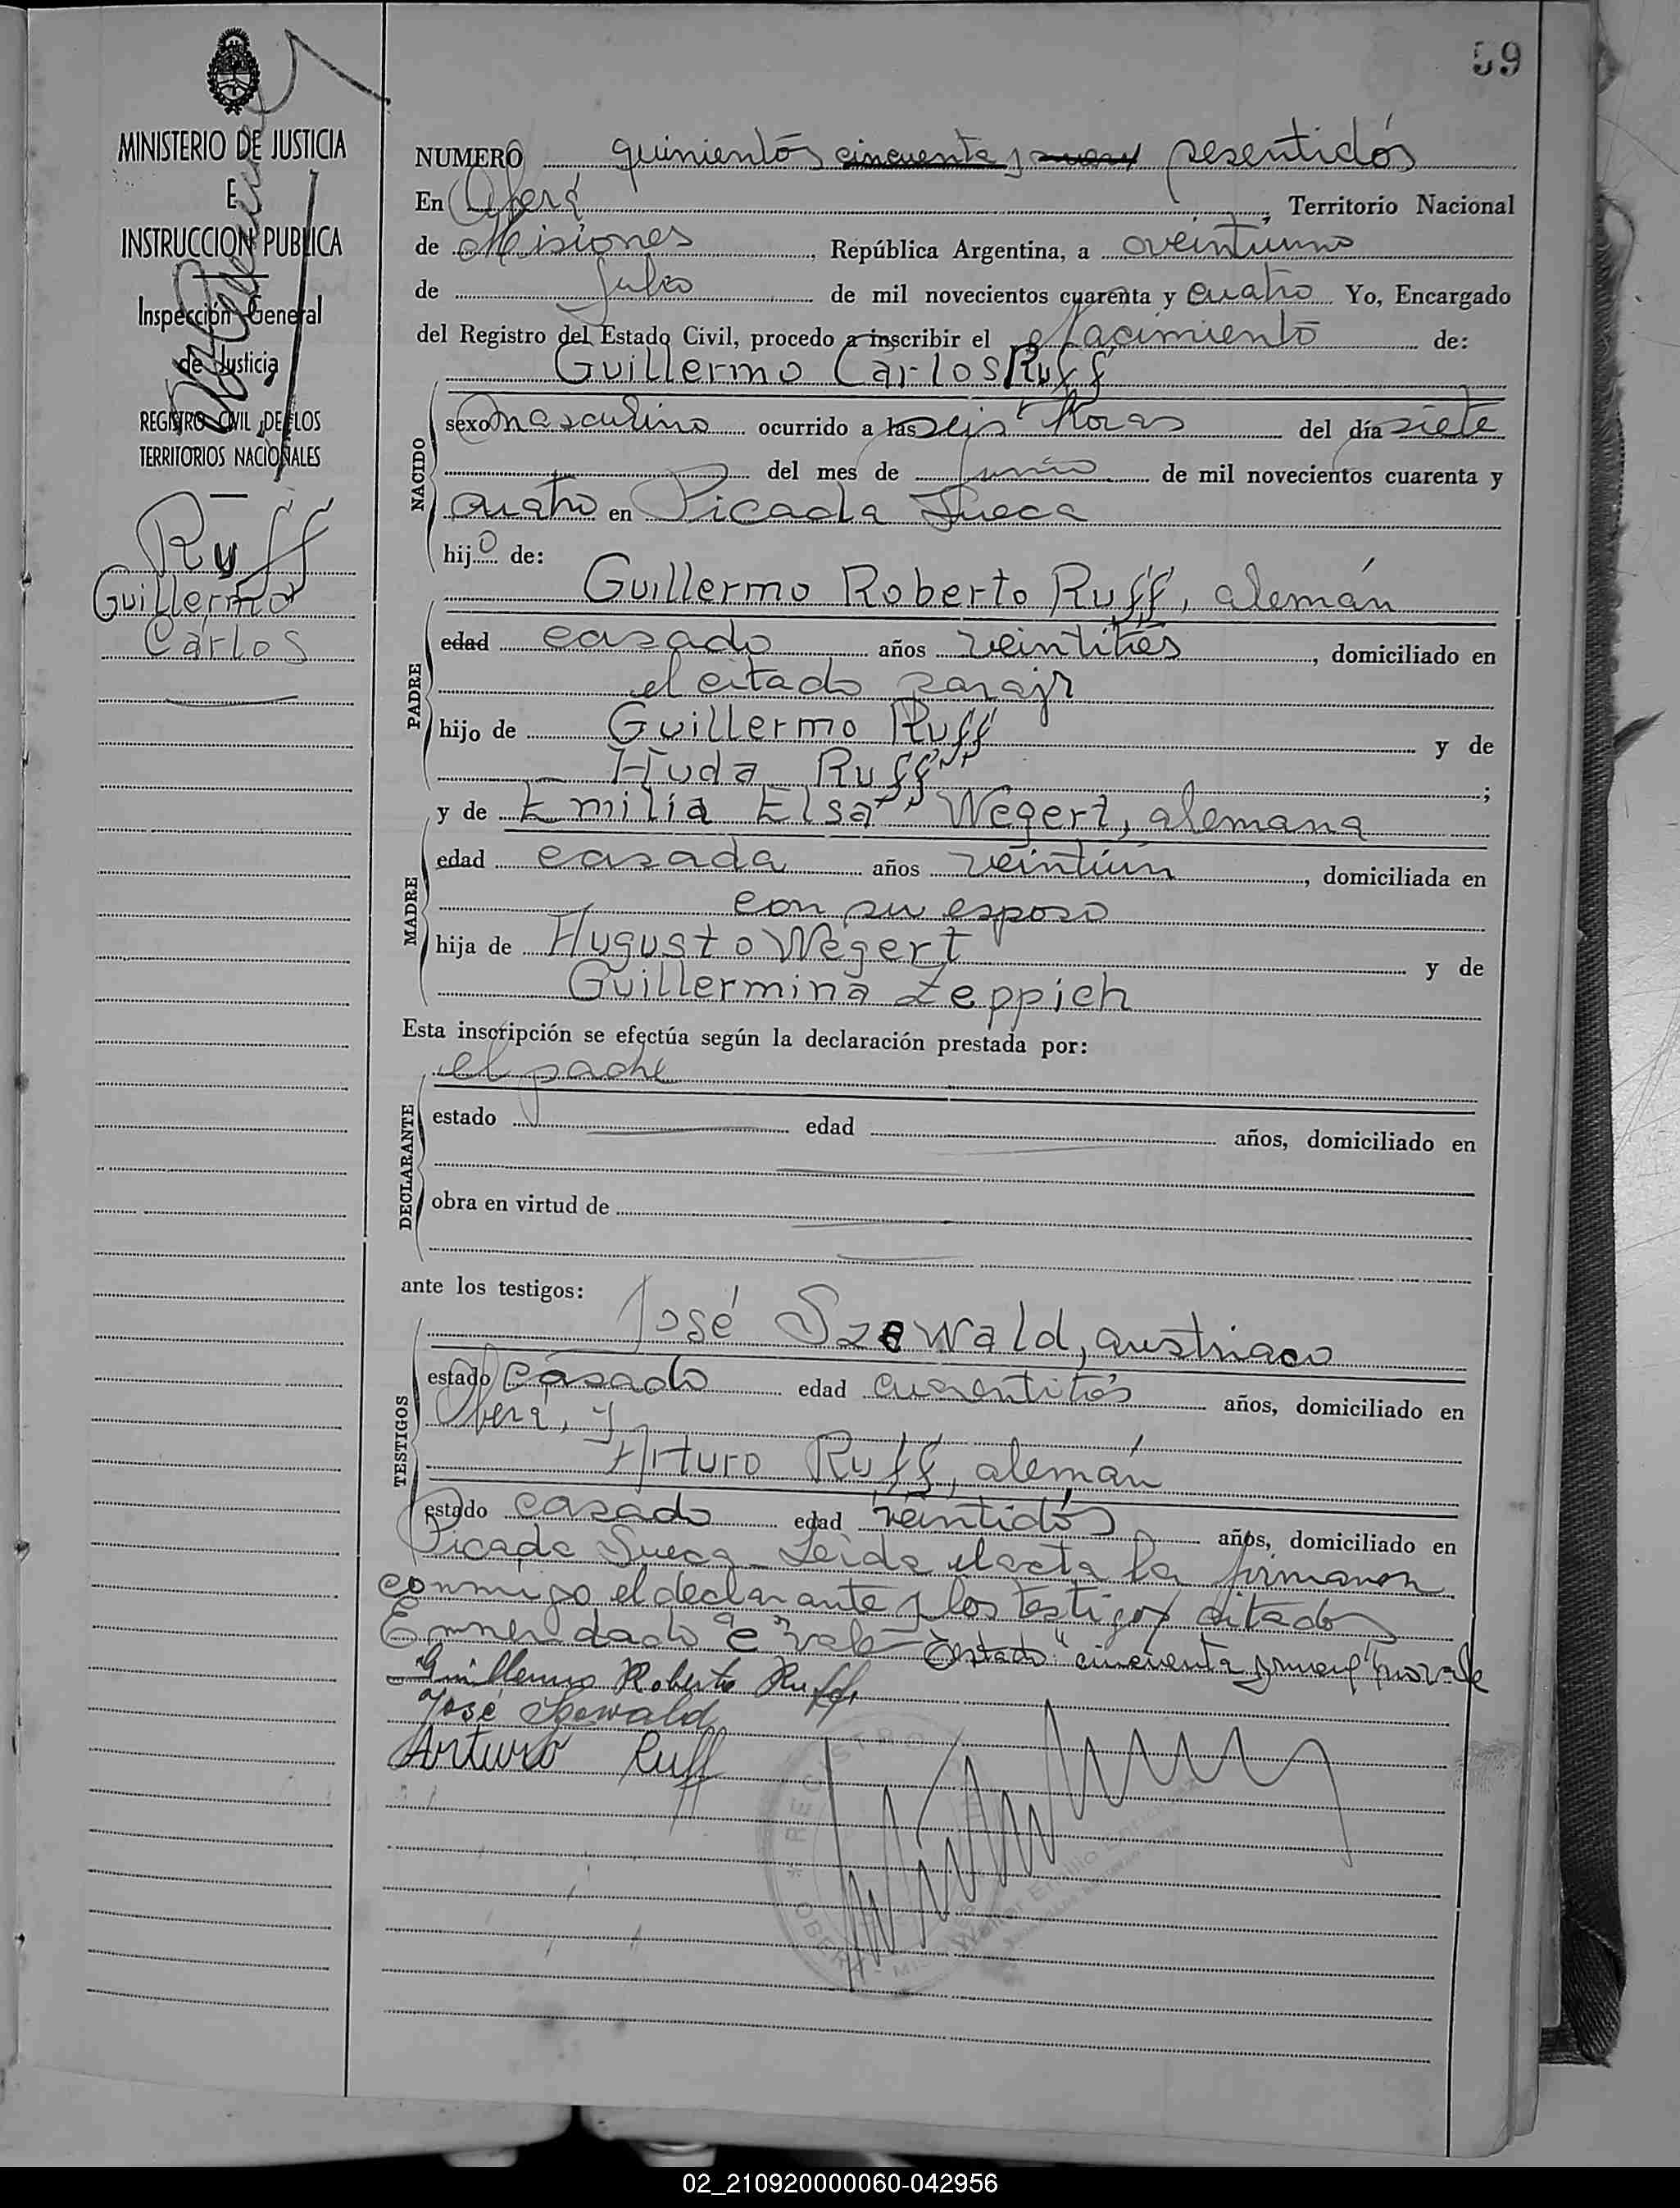 59
MINISTERIO DE JUSTICIA
E
INSTRUCCION PUBLICA
Inspección General
de Justicia
REGISTRO CIVIL DE LOS
TERRITORIOS NACIONALES
Ruff
Guillermo
Carlos
NUMERO quinientos cincuenta y nueve sesentidós
En Oberá, Territorio Nacional
de Misiones, República Argentina, a veintiuno
de Julio de mil novecientos cuarenta y cuatro Yo, Encargado
del Registro del Estado Civil, procedo a inscribir el Nacimiento de:
Guillermo Carlos Ruff
NACIDO
sexo masculino ocurrido a las seis horas del día siete
del mes de junio de mil novecientos cuarenta y
cuatro en Picada Sueca
hijo de:
Guillermo Roberto Ruff, alemán
PADRE
edad casado años veintitrés, domiciliado en
el citado paraje
hijo de Guillermo Ruff y de
Huda Ruff;
y de Emilia Elsa Wegert, alemana
MADRE
edad casada años veintiún, domiciliada en
con su esposo
hija de Augusto Wegert y de
Guillermina Zeppich
Esta inscripción se efectúa según la declaración prestada por:
el padre
DECLARANTE
estado edad años, domiciliado en
obra en virtud de
ante los testigos:
José Szewald, austriaco
TESTIGOS
estado casado edad cuarentitrés años, domiciliado en
Oberá, y
Arturo Ruff, alemán
estado casado edad veintidós años, domiciliado en
Picada Sueca - Leida el acta la firmaron
conmigo el declarante y los testigos citados
Enmendado "e" vale - Testado: "cincuenta y nueve" no vale
Guillermo Roberto Ruff
José Szewald
Arturo Ruff
REGISTRO
OBERA - MISIONES
Walter Emilio
02_210920000060-042956